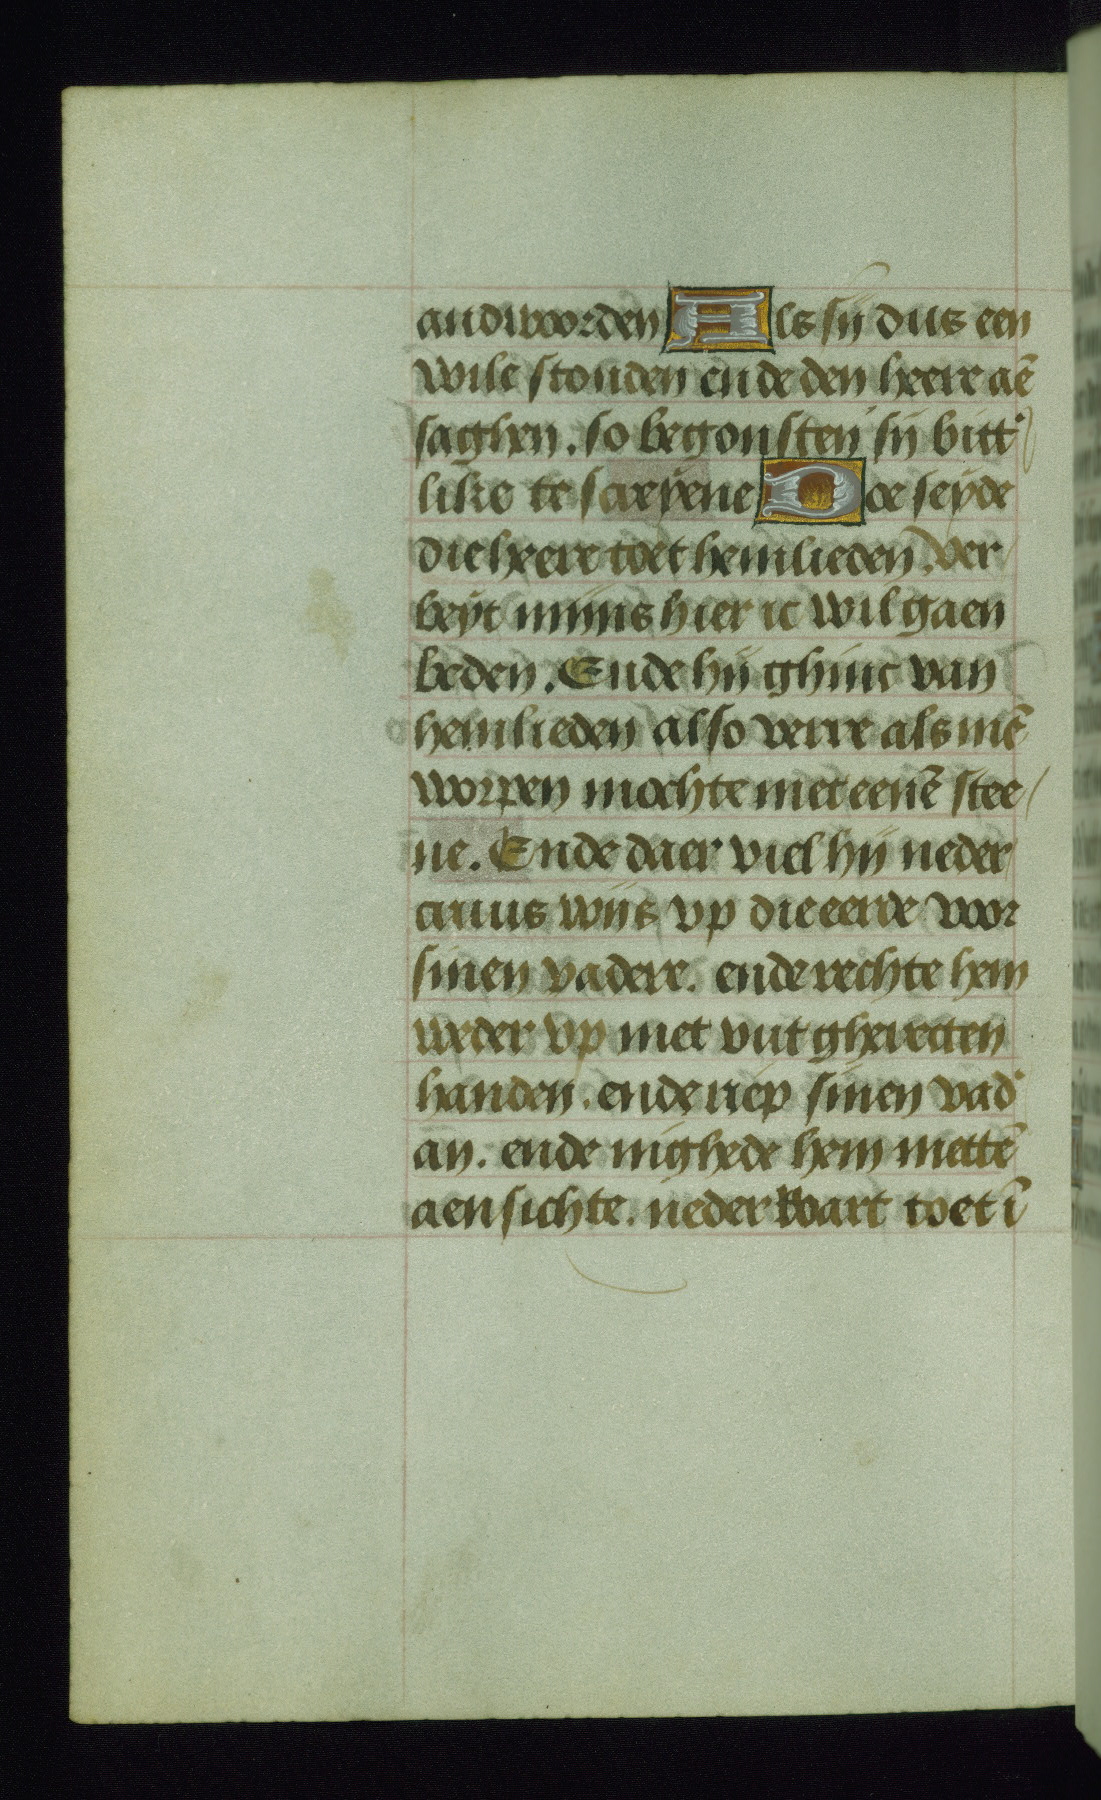 andwoorden Als sij dus een
wile stonden ende den heere aē
saghen. so begonsten sij bitt᾽
like te screÿene Doe seÿde
die heere toet hemlieden. Ver
beÿt mijns hier ic wil gaen
beden. Ende hij ghinc van
hemlieden also verre als mē
worpen mochte met eenē stee
ne. Ende daer viel hij neder
cruus wijs vp die eerde voor
sinen vadere. ende rechte hem
weder vp met vut gherecten
handen. ende riep sinen vad᾽
an. ende nighede hem mettē
aensichte. nederwart toet ī